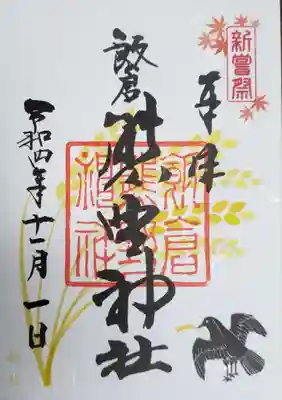 新嘗祭
奉拝
飯倉
熊野神社
令和四年十一月一日
飯倉
熊野
神社